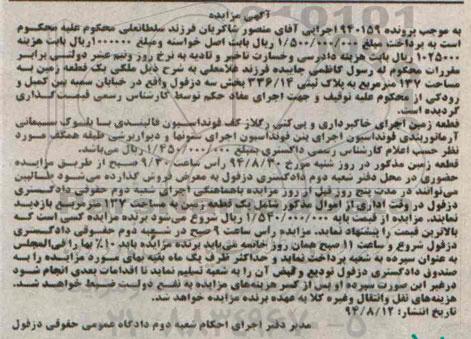 آگهی مزایده
به موجب پرونده ۹۴۰۱۵۹ اجرایی آقای منصور شاکریان فرزند سلطانعلی محکوم علیه محکوم
است به پرداخت مبلغ ۱/۵۰۰/۰۰۰/۰۰۰ ریال بابت اصل خواسته ومبلغ ۱۰۰۰۰۰۰ ریال بابت هزینه
۱۰۲۵۰۰۰ ریال بابت هزینه دادرسی وخسارت تاخیر و تادیه به نرخ روز ونیم عشر دولتی برابر
مقررات محکوم له رسول کاظمی جابنده فرزند غلامعلی به شرح ذیل ملکی یک قطعه زمین به
مساحت ۱۳۷ مترمربع به پلاک ثبتی ۳۳۶/۱۴ بخش سه دزفول واقع در خیابان سمیه بین کمیل و
رودکی از محکوم علیه توقیف و جهت اجرای مفاد حکم توسط کارشناس رسمی قیمت گذاری
گردیده است.
قطعه زمین اجرای خاکبرداری و پی کنی رگلاژ کف فونداسیون قالببندی با بلوک سیمانی
آرماتوربندی فونداسیون اجرای بتن فونداسیون اجرای ستونها و دیوارپرشی طبقه همکف مورد
نظر حسب اعلام کارشناس رسمی دادگستری بمبلغ ۱/۴۵۰/۰۰۰/۰۰۰ ریال می باشد.
قطعه زمین مذکور در روز شنبه مورخ ۹۴/۸/۳۰ راس ساعت ۹/۳۰ صبح از طریق مزایده
حضوری در محل دفتر شعبه دوم دادگستری دزفول به معرض فروش گذارده می شود طالبین
می توانند در مدت پنج روز قبل از روز مزایده باهماهنگی اجرای شعبه دوم حقوقی دادگستری
دزفول در وقت اداری از اموال مذکور شامل یک قطعه زمین به مساحت ۱۳۷ مترمربع بازدید
نمایند. مزایده از قیمت پایه ۱/۵۴۰/۰۰۰/۰۰۰ ریال شروع می شود برنده مزایده کسی است که
بالاترین قیمت را پیشنهاد نماید. مزایده راس ساعت ۹ صبح در شعبه دوم حقوقی دادگستری
دزفول شروع و ساعت ۱۱ صبح همان روز خاتمه می یابد برنده مزایده باید ۱۰٪ بها را فی المجلس
به عنوان سپرده به شعبه پرداخت نماید و حداکثر ظرف یک ماه بقیه بهای مورد مزایده را به
صندوق دادگستری دزفول تودیع و قبض آن را به شعبه تسلیم نماید تا اقدامات بعدی انجام شود
درغیر این صورت سپرده او پس از کسر هزینه های مزایده به نفع دولت ضبط خواهد شد.
هزینه های نقل وانتقال وغیره کلا به عهده برنده مزایده خواهد شد.
تاریخ انتشار: ۹۴/۸/۱۲
مدیر دفتر اجرای احکام شعبه دوم دادگاه عمومی حقوقی دزفول